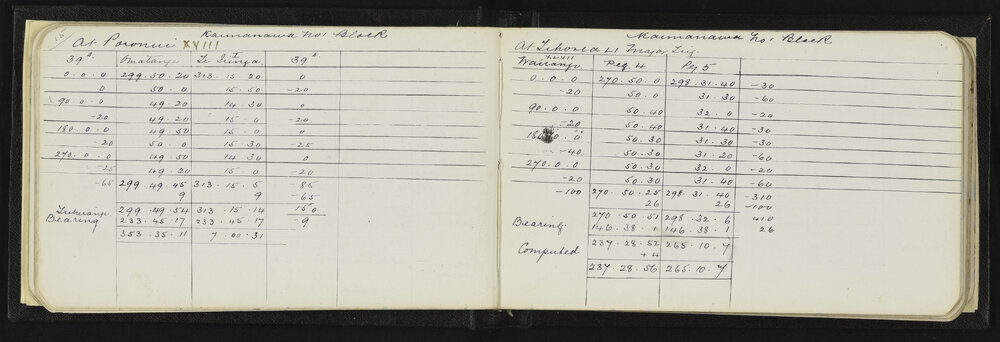 16 Kaimanawa No 1 Block
At Poronui XVIII
39A Omatangi Te Iringa I 39A
0.0.0 299.50.20 313.15.20 0
0 50.0 15.50 -20
90.0.0 49.20 14.30 0
-20 49.20 15.0 -20
180.0.0 49.50 15.0 0
-20 50.0 15.30 -25
270.0.0 49.50 14.30 0
-25 49.50 15.0 -20
-65 299.49.45 313.15.5 -85
9 9 -65
299.49.54 313.15.14 150
Bearing 233.45.17 233.45.17 -9
353.35.11 7.00.31
Kaimanawa No 1 Block
At Tihorea LI Major Trig
Wairango XLVII Peg 4 Pg 5
0.0.0 270.50.0 298.31.40 -30
-20 50.0 31.30 -60
90.0.0 50.40 32.0 -20
-20 50.40 31.40 -30
180.0.0 50.30 31.30 -30
-40 50.30 31.20 -60
270.0.0 50.30 32.0 -20
-20 50.30 31.40 -60
-100 270.50.25 298.31.40 -310
26 26 -100
270.50.51 298.32.6 410
Bearing 146.38.1 146.38.1 26
237.28.52 265.10.7
Computed +4
237.28.56 265.10.7